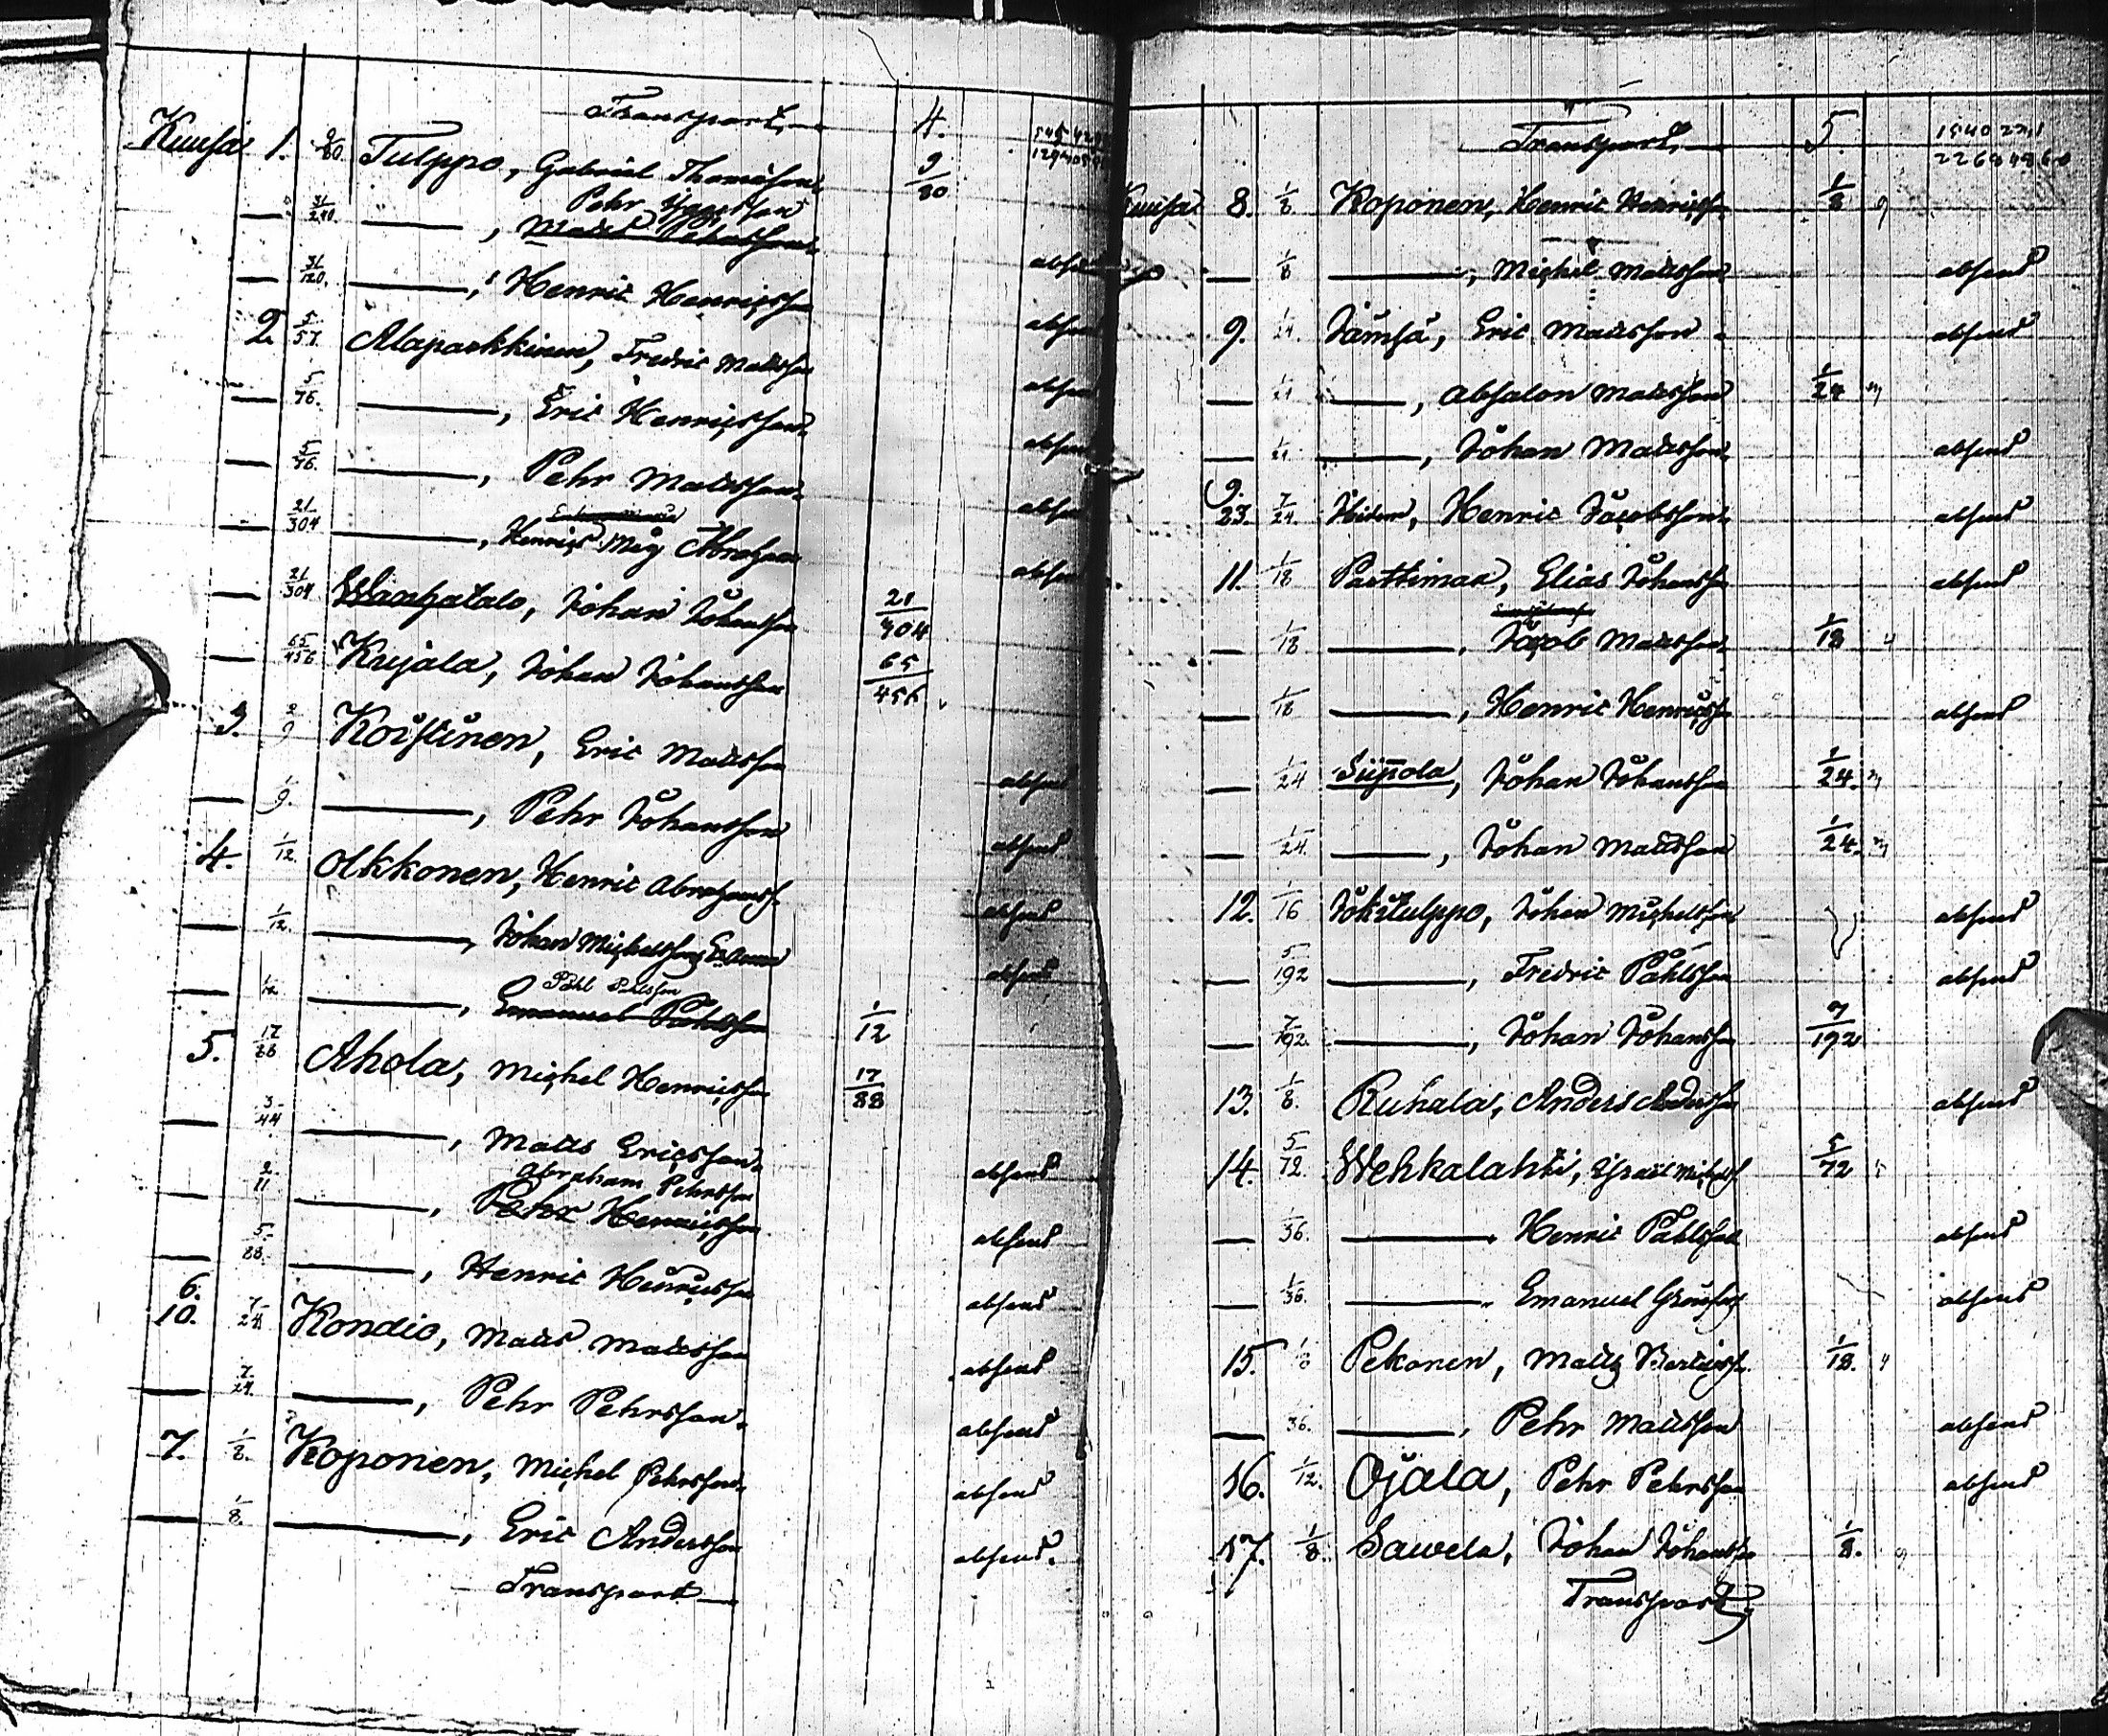 Transport 4.
Kuusa 1. 9/80 Tulppo, Gabriel Thomasson 9/80
— 31/240. —, Pehr
Matts
— 31/120. —, Henric Henricsson absend
2. 5/57. Alapaskkinen, Fredric Mattsson absend
— 5/76. —, Eric Henricsson absend
— 5/76. —, Pehr Mattsson absend
— 21/304 —, Henrics Måg Abraham absend
— 21/304 Wanhatalo, Johan Johansson 21/304 absend
— 65/456 Kujala, Johan Johansson 65/456
3. 2/9 Koistinen, Eric Mattsson
— 1/9. —, Pehr Johansson absend
4. 1/12. Olkkonen, Henric Abrahamss. absend
— 1/12. —, Johan Michelsson absend
Påhl Påhlsson
— 1/12 —, Emanuel Påhlsson 1/12 absend
5. 17/88 Ahola, Michel Henricsson 17/88
— 3/44 —, Matts Ericsson
Abraham Pehrsson
— 2/11 —, Pehr Henricsson absend
— 5/88. —, Henric Henricsson absend
6.
10. 7/24 Kondio, Matts Mattsson absend
— 7/24. —, Pehr Pehrsson absend
7. 1/8. Koponen, Michel Pehrsson absend
— 1/8. —, Eric Andersson absend
Transport — absend.
Transport 5.
Kuusa 8. 1/8 Koponen, Henric Henricsson 1/8
— 1/8 —, Michel Mattsson absend
9. 1/24. Jämsä, Eric Mattsson absend
— 1/24 —, Absalon Mattsson 1/24
— 1/24. —, Johan Mattsson absend
9.
23. 7/24. Henric Jacobsson absend
11. 1/18 Parttimaa, Elias Johansson absend
— 1/18 —, Jacob Mattsson 1/18
— 1/18 —, Henric Henricsson absend
— 1/24 Sippola, Johan Johansson 1/24.
— 1/24. —, Johan Mattsson 1/24.
12. 1/16 Jokitulppo, Johan Michelsson absend
— 5/192 —, Fredric Påhlsson absend
— 7/192. —, Johan Johansson 7/192
13. 1/8. Ruhala, Anders Andersson absend
14. 5/72. Wehkalahti, Israel Michelss. 5/72
— 1/36. — Henric Påhlsson absend
— 1/36. — Emanuel absend
15. 1/18 Pekonen, Matts Bertilss. 1/18.
— 1/36. —, Pehr Mattsson absend
16. 1/12. Ojala, Pehr Pehrsson absend
17. 1/8. Sawela, Johan Johansson 1/8.
Transport